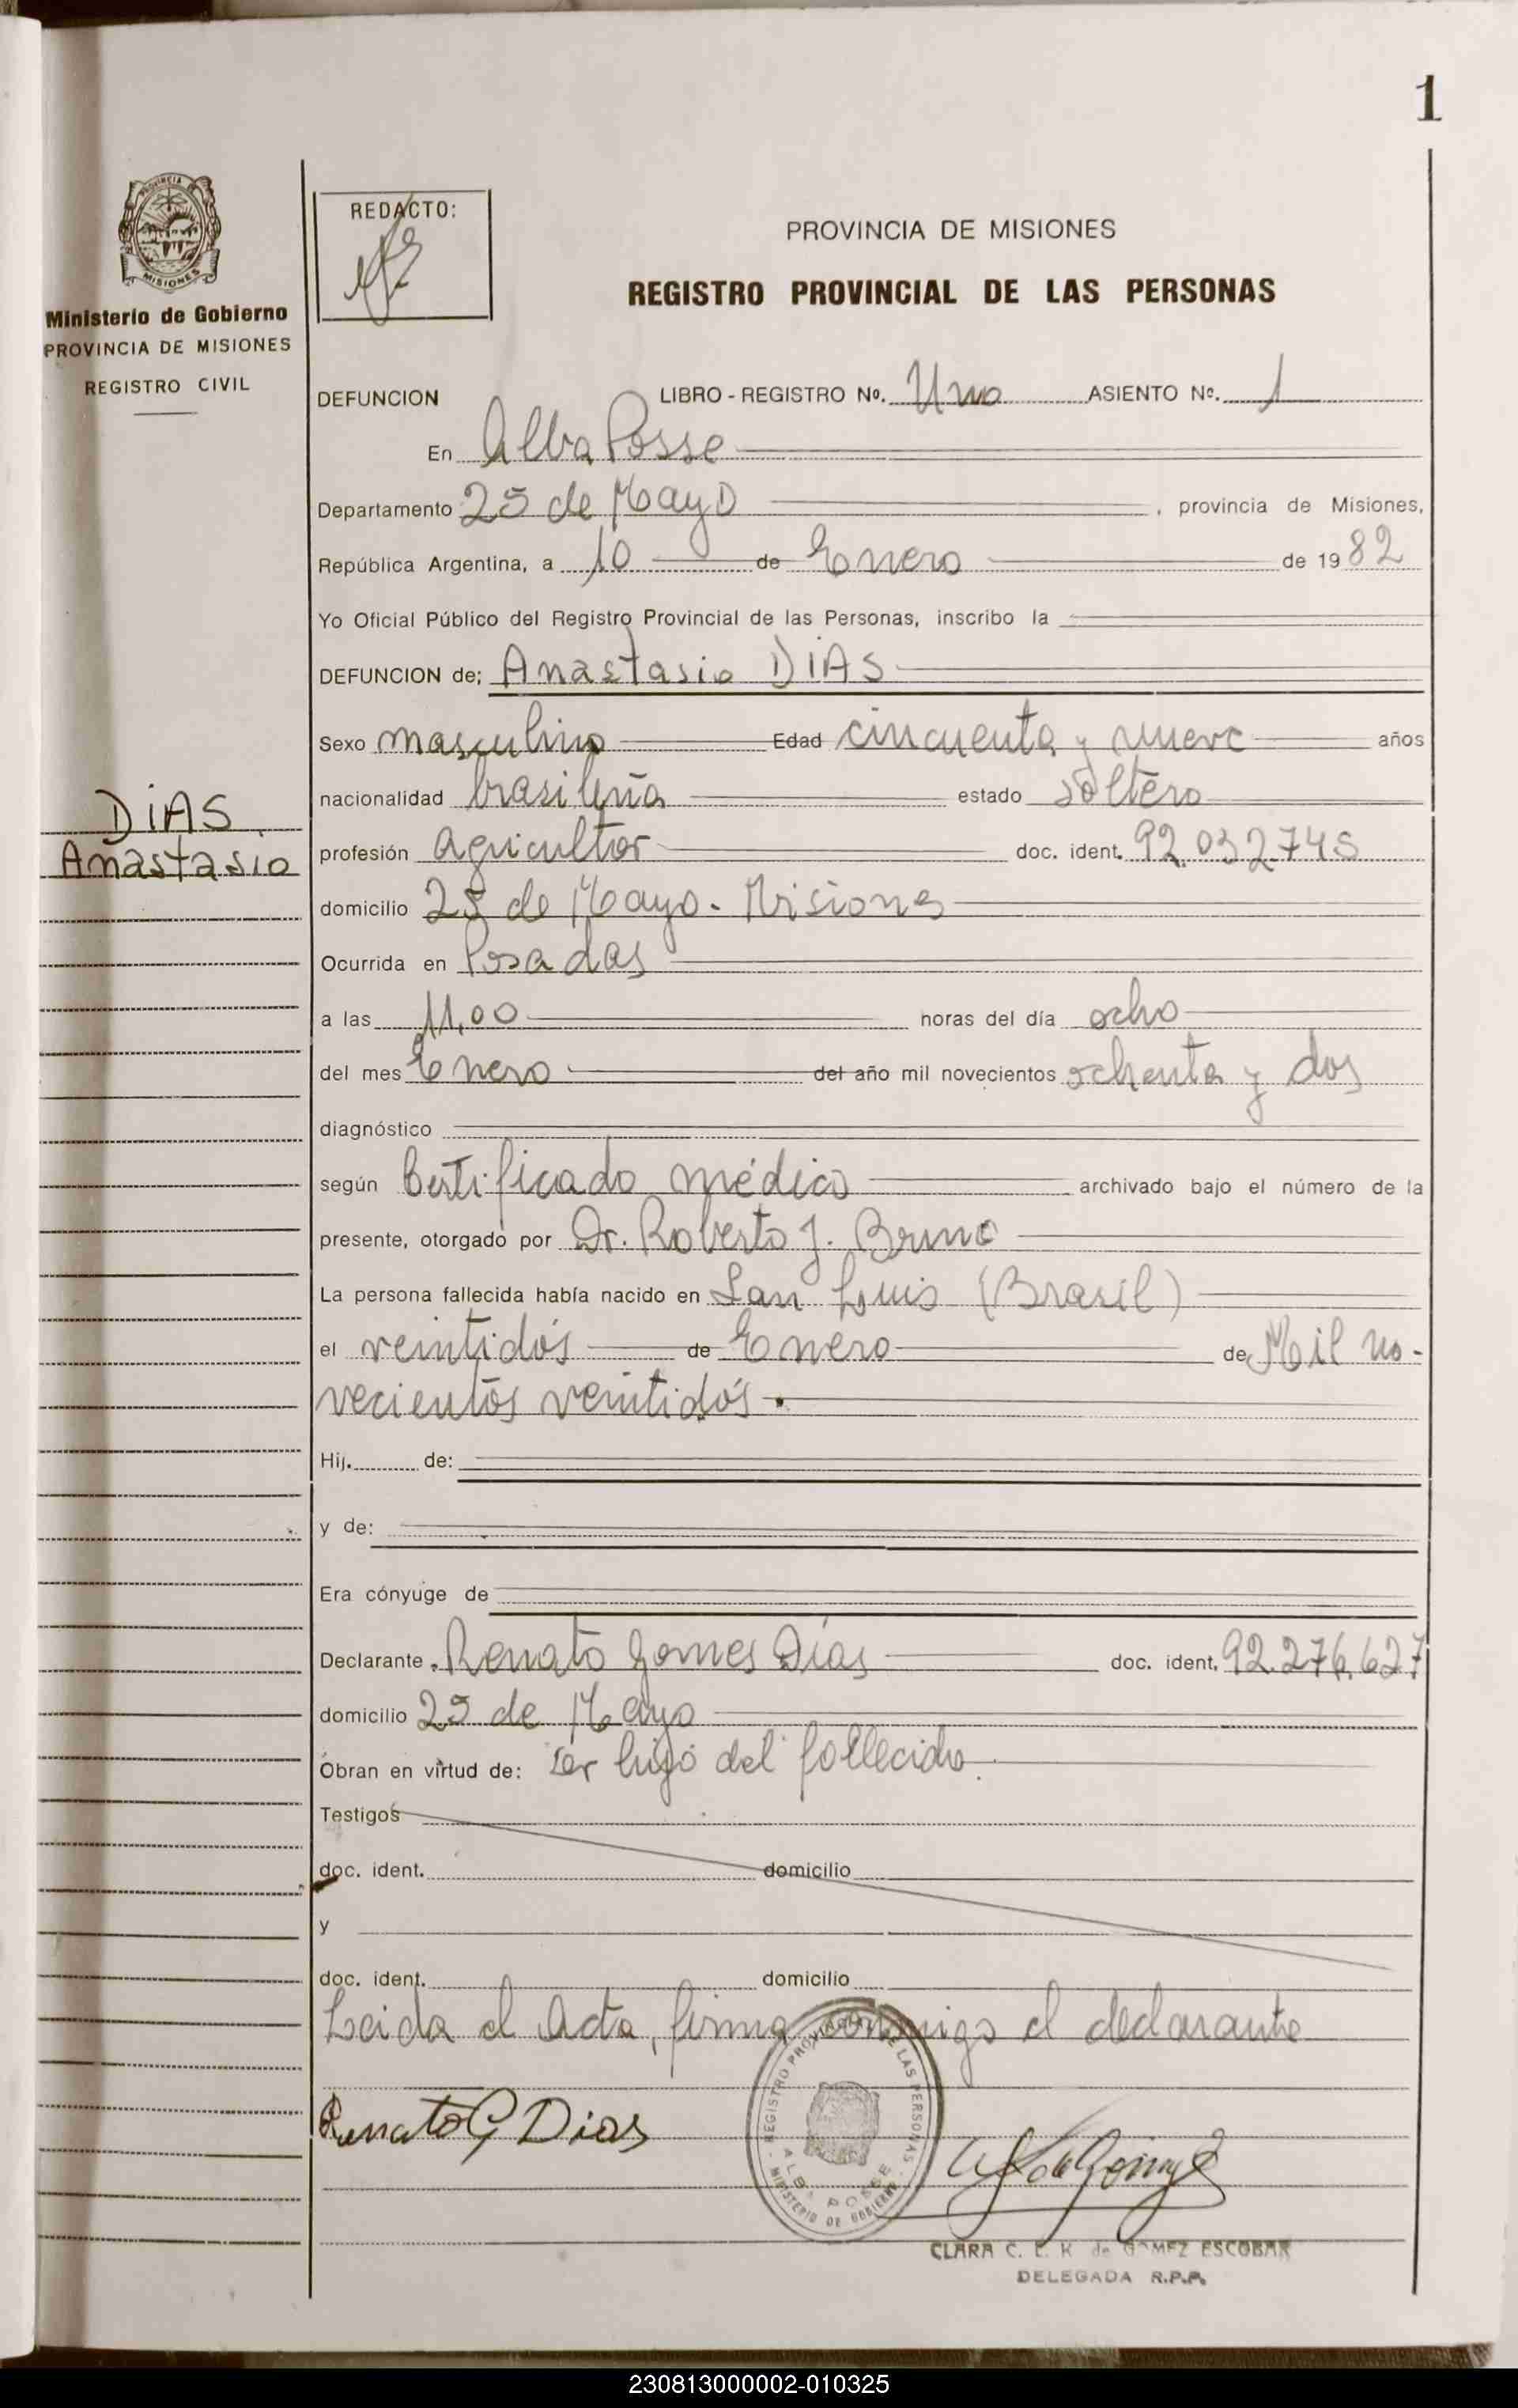 1
PROVINCIA DE
MISIONES
Ministerio de Gobierno
PROVINCIA DE MISIONES
REGISTRO CIVIL
DIAS
Anastasio
REDACTO:
PROVINCIA DE MISIONES
REGISTRO PROVINCIAL DE LAS PERSONAS
DEFUNCION LIBRO - REGISTRO No. Uno ASIENTO No. 1
En Alba Posse
Departamento 25 de Mayo , provincia de Misiones,
República Argentina, a 10 de Enero de 1982
Yo Oficial Público del Registro Provincial de las Personas, inscribo la
DEFUNCION de; Anastasio DIAS
Sexo masculino Edad cincuenta y nueve años
nacionalidad brasileña estado soltero
profesión agricultor doc. ident. 92.032745
domicilio 25 de Mayo - Misiones
Ocurrida en Posadas
a las 11,00 horas del día ocho
del mes Enero del año mil novecientos ochenta y dos
diagnóstico
según Certificado médico archivado bajo el número de la
presente, otorgado por Dr. Roberto J. Bruno
La persona fallecida había nacido en San Luis (Brasil)
el veintidós de Enero de Mil no-
vecientos veintidós.
Hij. de:
y de:
Era cónyuge de
Declarante Renato Gomes Días doc. ident. 92.276.627
domicilio 25 de Mayo
Obran en virtud de: ser hijo del fallecido.
Testigos
doc. ident. domicilio
y
doc. ident. domicilio
Leida el Acta, firma conmigo el declarante
Renato G Dias
REGISTRO PROVINCIAL DE LAS PERSONAS
ALBA POSSE
MINISTERIO DE GOBIERNO
CLARA C. E. K de GOMEZ ESCOBAR
DELEGADA R.P.P.
230813000002-010325